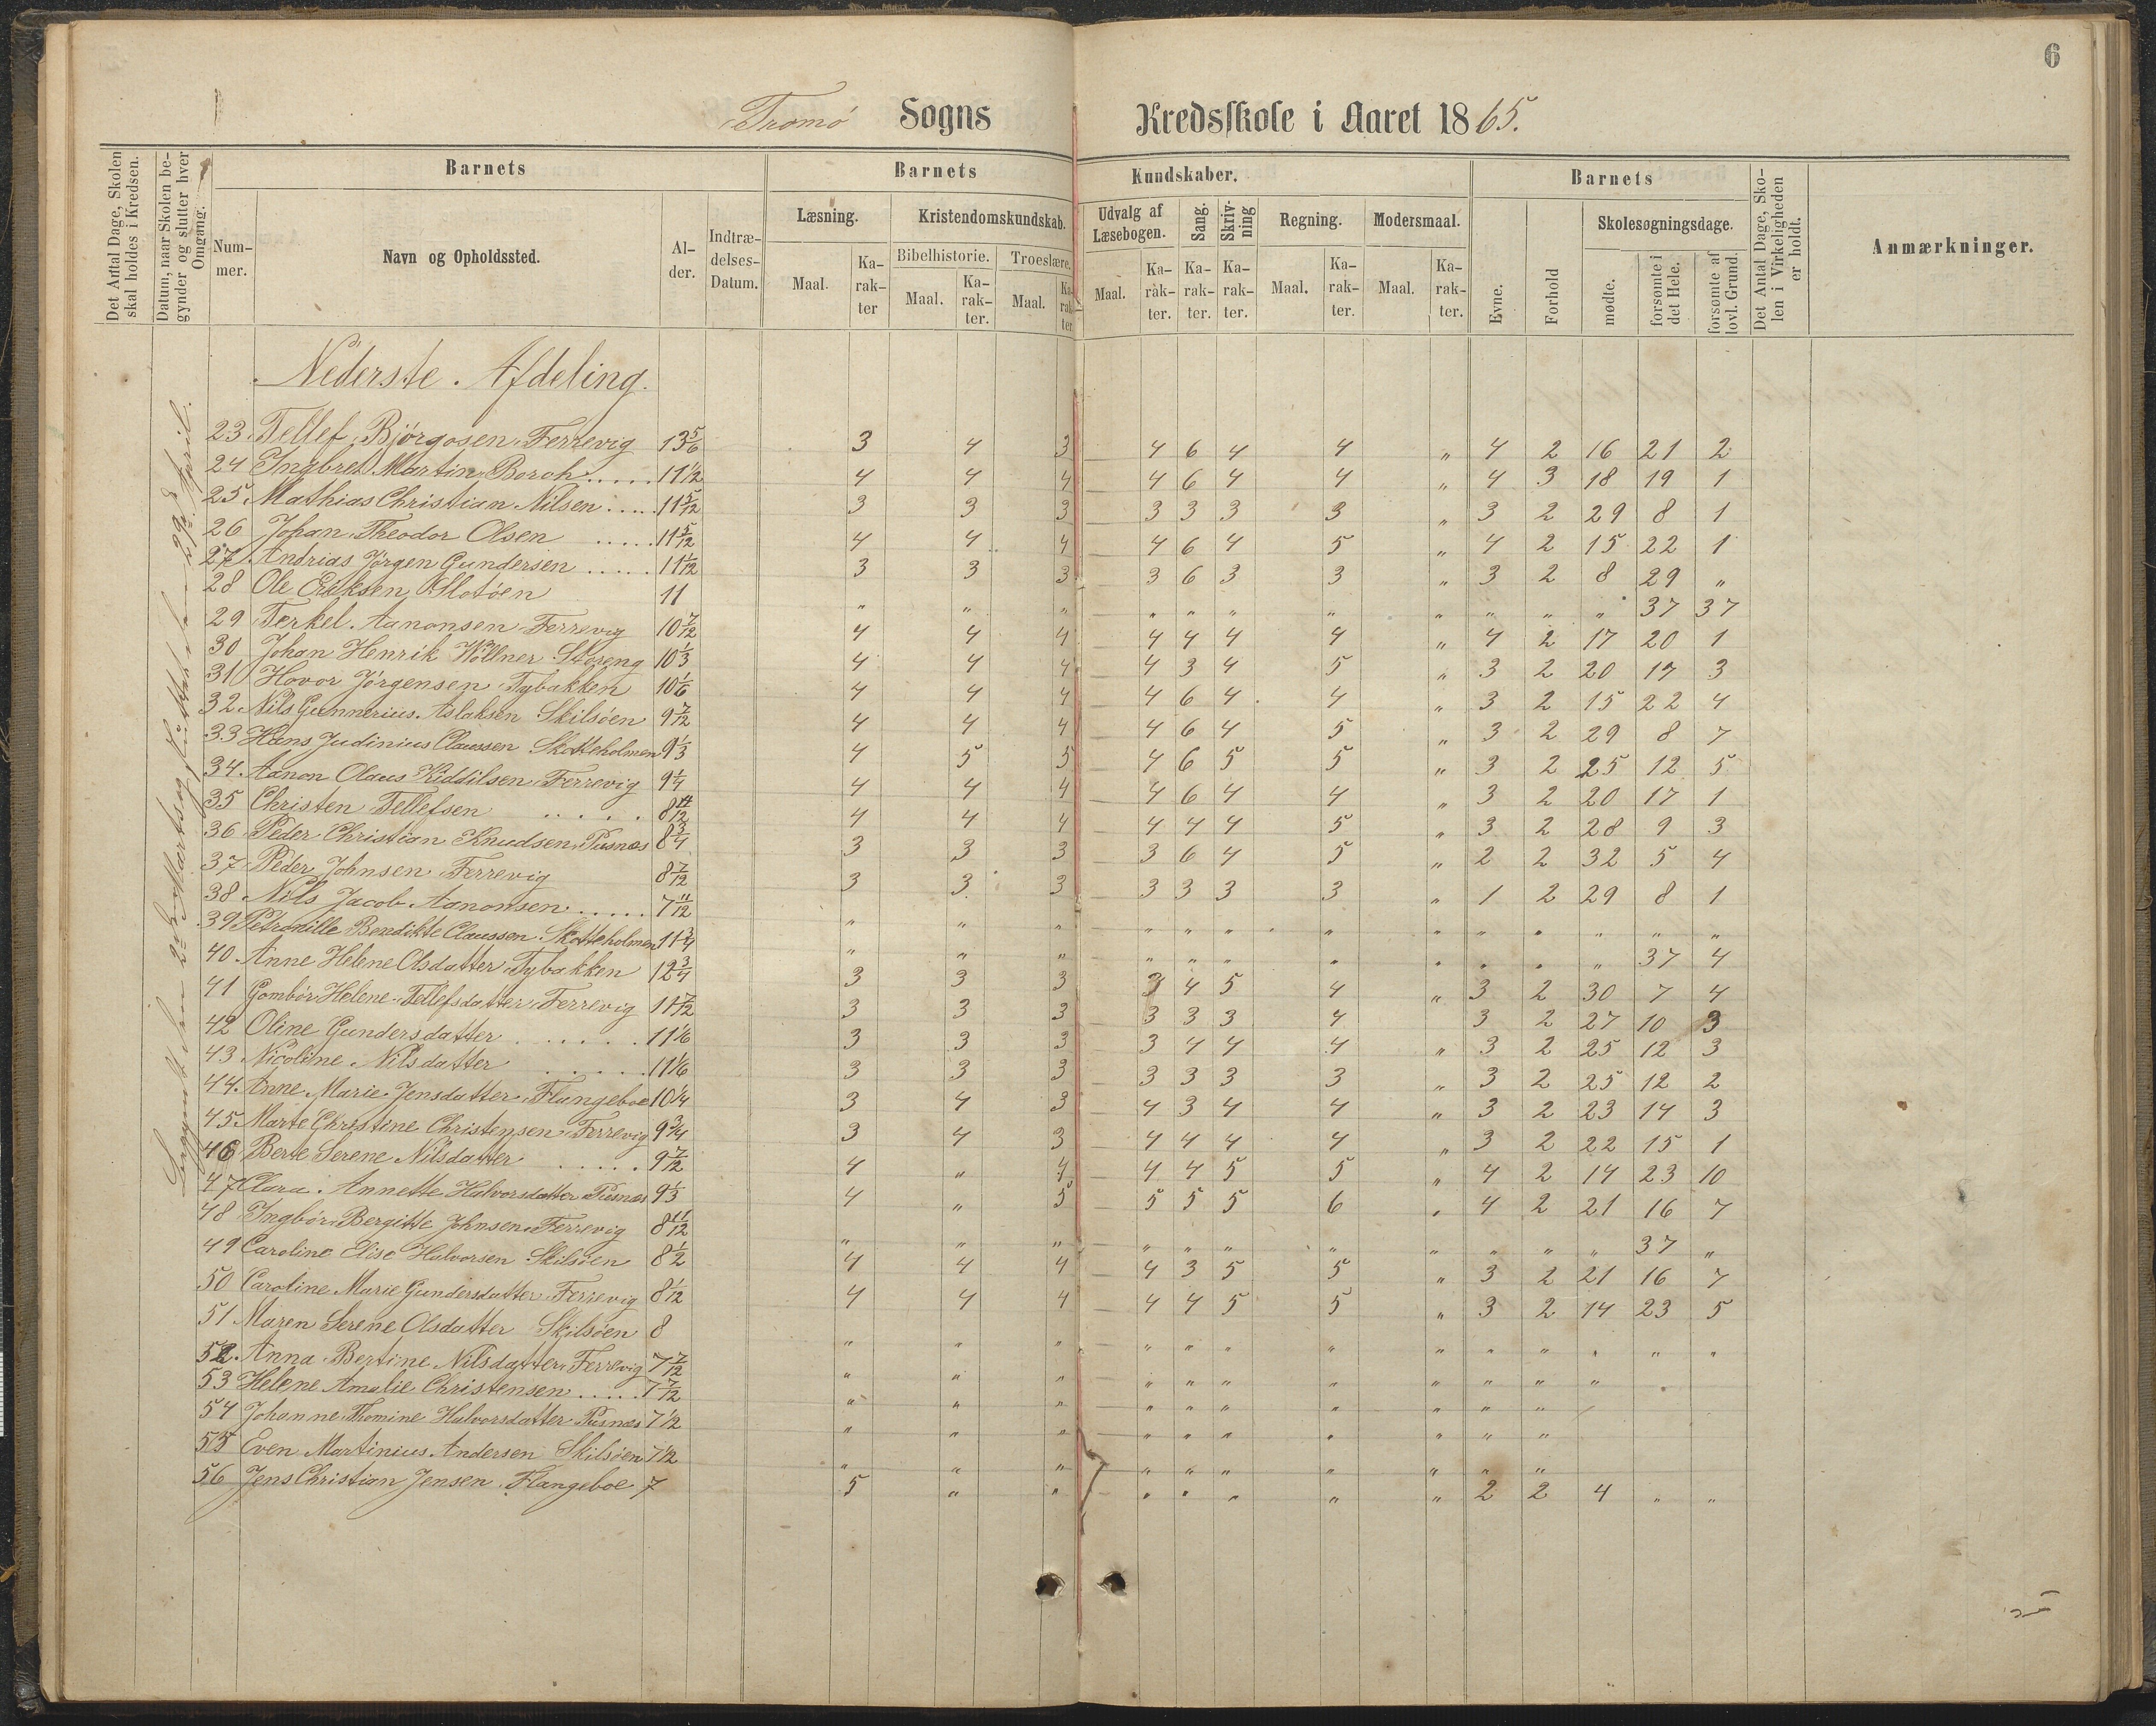 6
Tromö Sogns Kredsskole i Aaret 1865.
Det Antal Dage, Skolen skal holdes i Kredsen.
Datum, naar Skolen begynder og slutter hver Omgang.
Barnets
Nummer.
Navn og Opholdssted.
Alder.
Indtrædelses-Datum.
Barnets Kundskaber.
Læsning.
Maal. Karakter
Kristendomskundskab.
Bibelhistorie. Troeslære.
Maal. Karakter. Maal. Karakter
Udvalg af Læsebogen.
Maal. Karakter.
Sang. Karakter.
Skrivning Karakter.
Regning.
Maal. Karakter.
Modersmaal.
Maal. Karakter.
Barnets
Evne. Forhold
Skolesøgningsdage.
mødte. forsømte i det Hele. forsømte af lovl. Grund.
Det Antal Dage, Skolen i Virkeligheden er holdt.
Anmærkninger.
Nederste Afdeling.
23. Tellef Björgosen Ferrevig 13 5/6 3 4 3 4 6 4 4 " 4 2 16 21 2
24 Ingbret Martin Boroh ..... 11 1/2 4 4 4 4 6 4 4 " 4 3 18 19 1
25. Mathias Christian Nilsen ..... 11 5/12 3 3 3 3 3 3 3 " 3 2 29 8 1
26 Johan Theodor Olsen ..... 11 5/12 4 4 4 4 6 4 5 " 4 2 15 22 1
27 Andrias Jörgen Gundersen ..... 11 1/12 3 3 3 3 6 3 3 " 3 2 8 29 "
28 Ole Eriksen 11 " " " " " " " " " " " 37 37
29 Terkel Aanonsen Ferrevig 10 7/12 4 4 4 4 4 4 4 " 4 2 17 20 1
30 Johan Henrik Wöllner Storeng 10 1/3 4 4 4 4 3 4 5 " 3 2 20 17 3
31 Hovor Jörgensen Tybakken 10 1/6 4 4 4 4 6 4 4 " 3 2 15 22 4
32. Nils Gunnerius Aslaksen Skilsöen 9 7/12 4 4 4 4 6 4 5 " 3 2 29 8 7
33 Hans Judinius Claussen Skotteholmen 9 1/3 4 5 5 4 6 5 5 " 3 2 25 12 5
34. Aanon Olaus Kiddilsen Ferrevig 9 1/4 4 4 4 4 6 4 4 " 3 2 20 17 1
35 Christen Tellefsen ..... 8 11/12 4 4 4 4 4 4 5 " 3 2 28 9 3
36 Peder Christian Knudsen Pusnæs 8 3/4 3 3 3 3 6 4 5 " 2 2 32 5 4
37 Peder Johnsen Ferrevig 8 7/12 3 3 3 3 3 3 3 " 1 2 29 8 1
38. Nils Jacob Aanonsen ..... 7 11/12 " " " " " " " " " " " " "
39 Petronille Benedikte Claussen Skotteholmen 11 3/4 " " " " " " " " " " " 37 4
40. Anne Helene Olsdatter Tybakken 12 3/4 3 3 3 3 4 5 4 " 3 2 30 7 4
41 Gombör Helene Tellefsdatter Ferrevig 11 7/12 3 3 3 3 3 3 4 3 2 27 10 3
42 Oline Gundersdatter ...... 11 1/6 3 3 3 3 4 4 4 " 3 2 25 12 3
43 Nicoline Nilsdatter ..... 11 1/6 3 3 3 3 3 3 3 " 3 2 25 12 2
44. Anne Marie Jensdatter Flangeboe 10 1/4 3 4 3 4 3 4 4 " 3 2 23 14 3
45 Marte Christine Christensen Ferrevig 9 3/4 3 4 3 4 4 4 4 " 3 2 22 15 1
46 Berte Serene Nilsdatter ..... 9 7/12 4 " 4 4 4 5 5 " 4 2 14 23 10
47 Clara Annette Halvorsdatter Pusnæs 9 1/3 4 " 5 5 5 5 6 " 4 2 21 16 7
48 Ingbör Bergitte Johnsen Ferrevig 8 11/12 " " " " " " " " " " " 37 "
49 Caroline Elise Halvorsen Skilsöen 8 1/2 4 4 4 4 3 5 5 " 3 2 21 16 7
50 Caroline Marie Gundersdatter Ferrevig 8 1/12 4 4 4 4 4 5 5 " 3 2 14 23 5
51 Maren Serene Olsdatter Skilsöen 8 " " " " " " " " " " " " "
52. Anna Bertine Nilsdatter Ferrevig 7 7/12 " " " " " " " " " " "
53 Helene Amalie Christensen ..... 7 7/12 " " " " " " " " " "
54 Johanne Thomine Halvorsdatter Pusnæs 7 1/2 " " " " " " " " " "
55 Even Martinius Andersen Skilsöen 7 1/2 " " " " " " " " " "
56 Jens Christian Jensen Flangeboe 7 5 " " " " " " " 2 2 4 " "